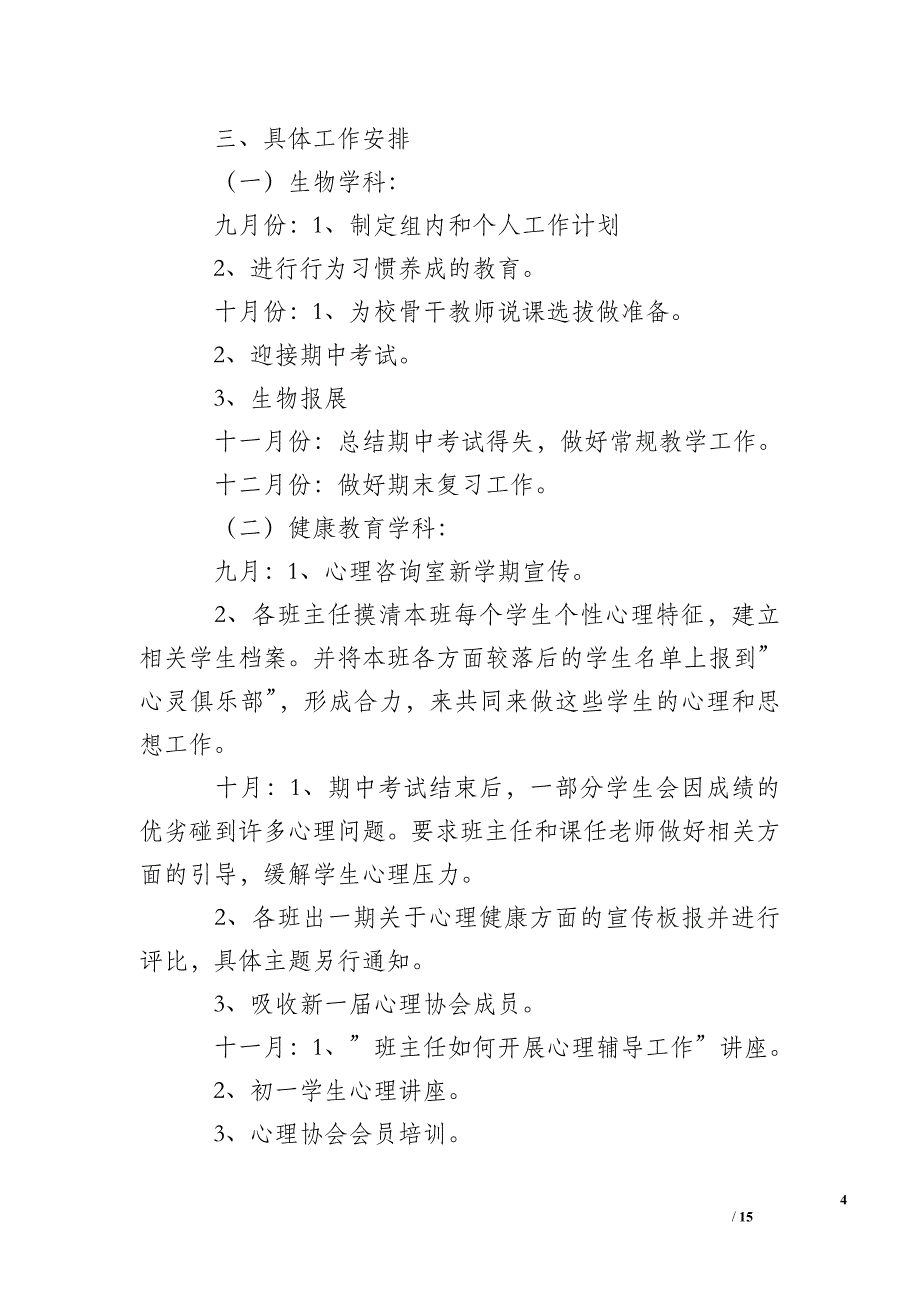 三、具体工作安排
（一）生物学科：
九月份：1、制定组内和个人工作计划
2、进行行为习惯养成的教育。
十月份：1、为校骨干教师说课选拔做准备。
2、迎接期中考试。
3、生物报展
十一月份：总结期中考试得失，做好常规教学工作。
十二月份：做好期末复习工作。
（二）健康教育学科：
九月：1、心理咨询室新学期宣传。
2、各班主任摸清本班每个学生个性心理特征，建立
相关学生档案。并将本班各方面较落后的学生名单上报到”
心灵俱乐部”，形成合力，来共同来做这些学生的心理和思
想工作。
十月：1、期中考试结束后，一部分学生会因成绩的
优劣碰到许多心理问题。要求班主任和课任老师做好相关方
面的引导，缓解学生心理压力。
2、各班出一期关于心理健康方面的宣传板报并进行
评比，具体主题另行通知。
3、吸收新一届心理协会成员。
十一月：1、”班主任如何开展心理辅导工作”讲座。
2、初一学生心理讲座。
3、心理协会会员培训。
4
/ 15